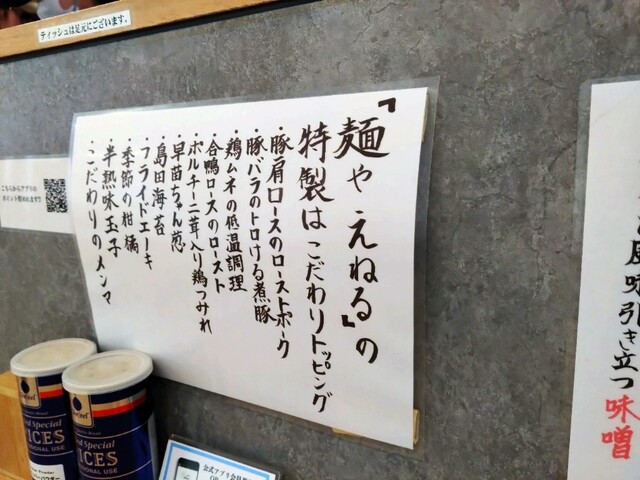 ティッシュは足元にございます。
『麺や えねる』の
特製はこだわりトッピング
・豚肩ロースのローストポーク
・豚バラのトロける煮豚
・鶏ムネの低温調理
・合鴨ロースのロースト
・ポルチーニ茸入り鶏つみれ
・早苗ちゃん葱
・島田海苔
・フライドエノキ
・季節の柑橘
・半熟味玉子
・こだわりのメンマ
こちらからアプリの
ポイント貯めれます!!
風味引き立つ味噌
Special
ICES
IONAL USE
ed Special
ICES
IONAL USE
公式アプリ会員